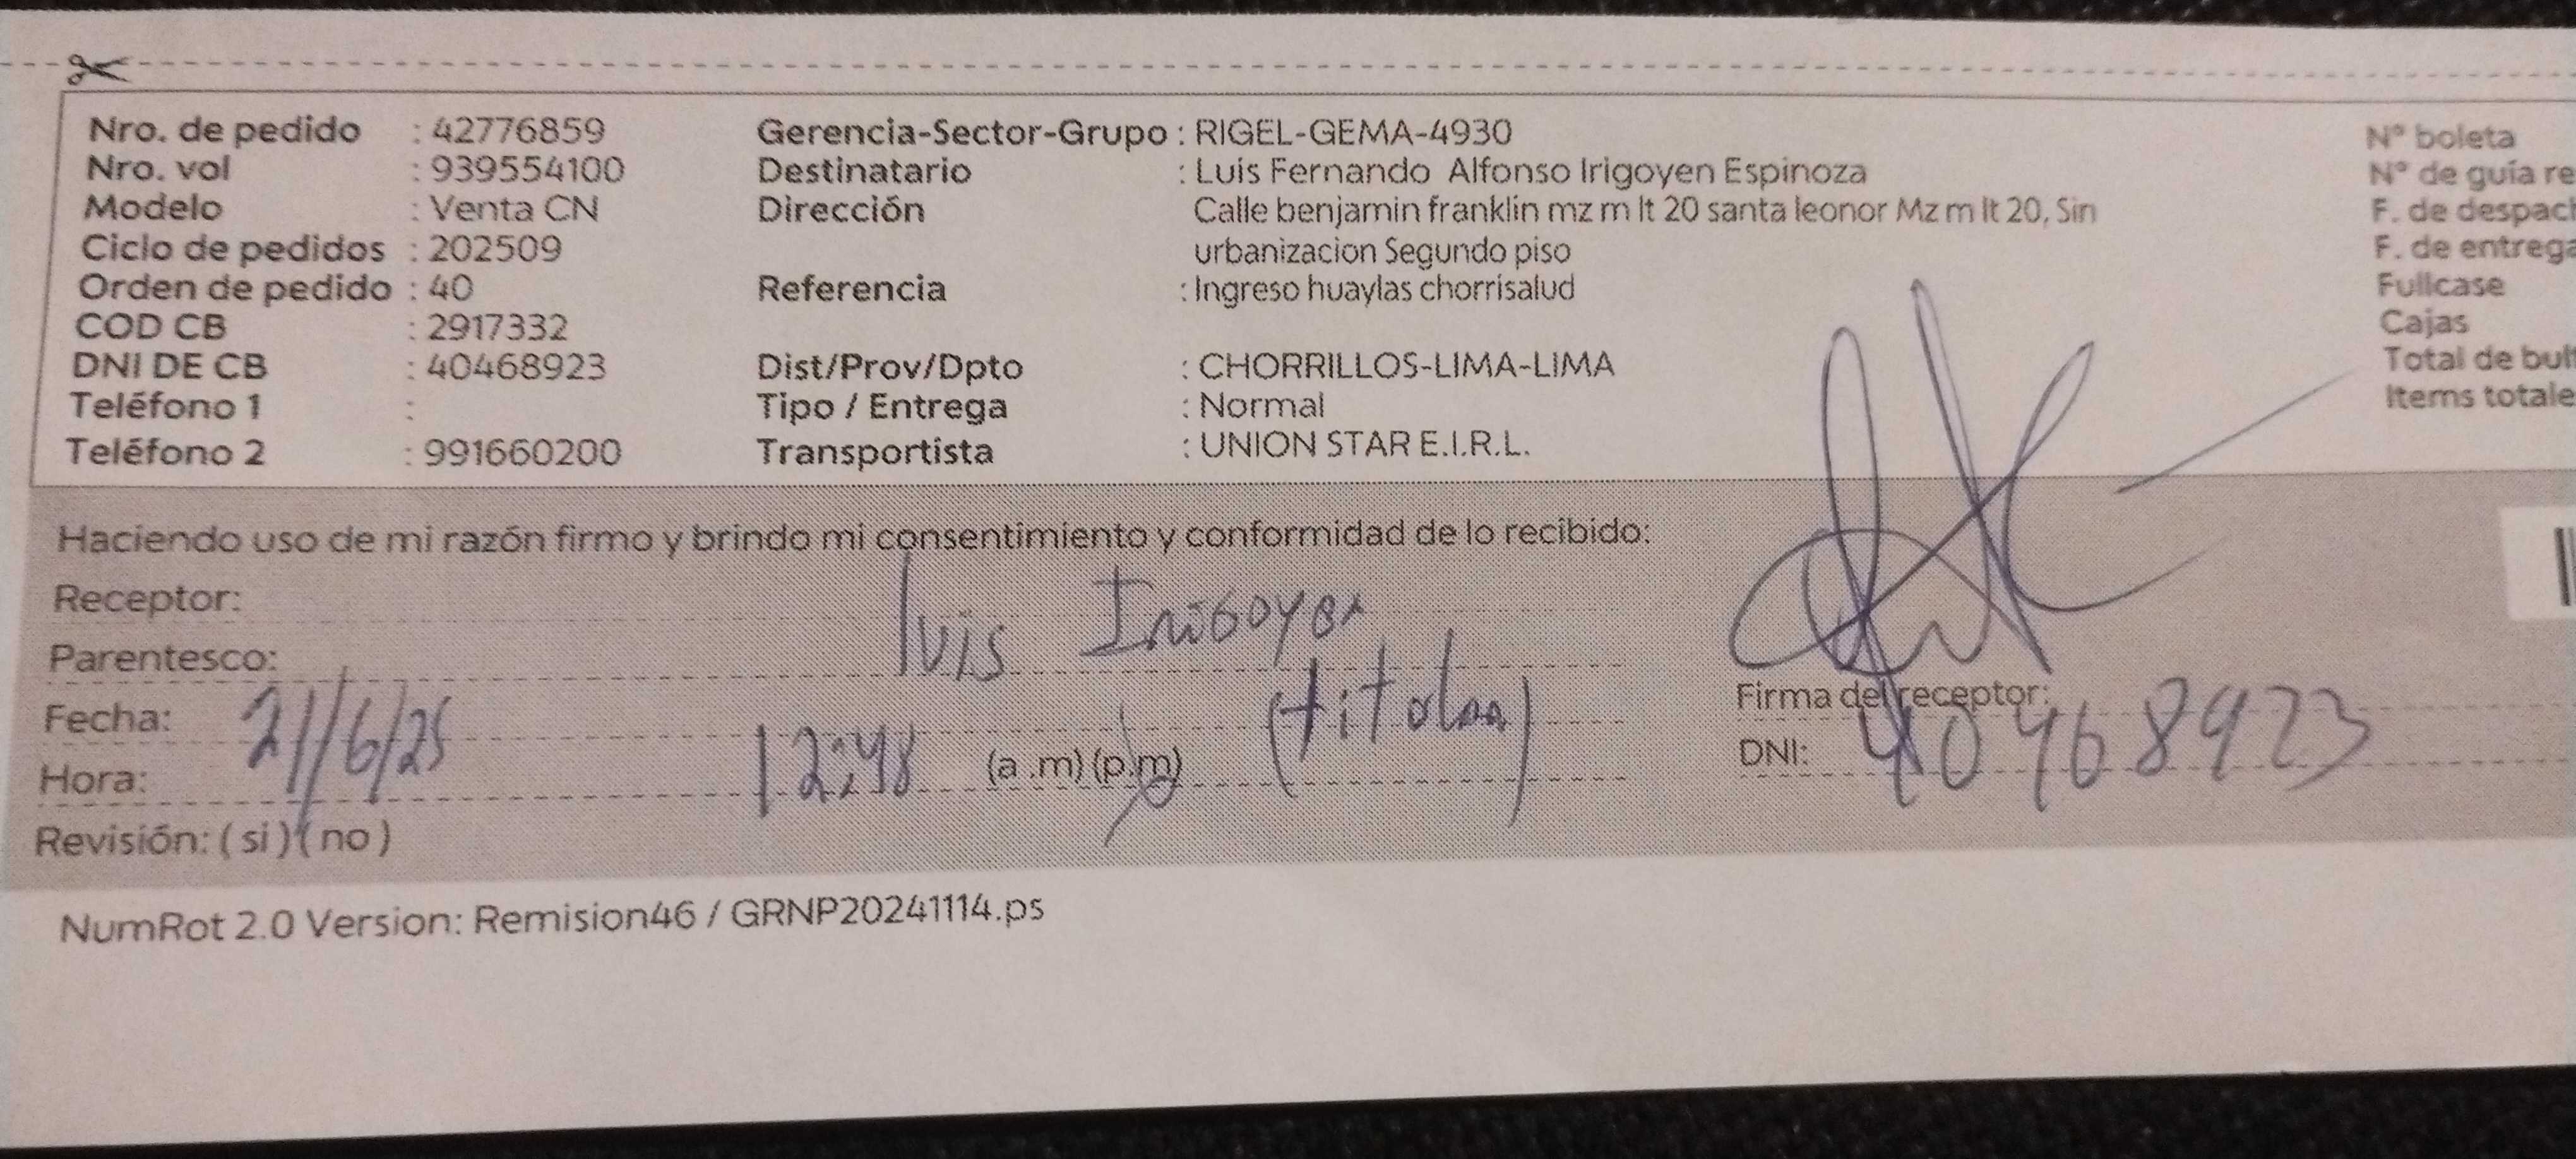 Nro. de pedido : 42776859
Nro. vol : 939554100
Modelo : Venta CN
Ciclo de pedidos : 202509
Orden de pedido : 40
COD CB : 2917332
DNI DE CB : 40468923
Teléfono 1 :
Teléfono 2 : 991660200
Gerencia-Sector-Grupo : RIGEL-GEMA-4930
Destinatario : Luis Fernando Alfonso Irigoyen Espinoza
Dirección Calle benjamin franklin mz m lt 20 santa leonor Mz m lt 20, Sin
urbanizacion Segundo piso
Referencia : Ingreso huaylas chorrisalud
Dist/Prov/Dpto : CHORRILLOS-LIMA-LIMA
Tipo / Entrega : Normal
Transportista : UNION STAR E.I.R.L.
N° boleta
N° de guía re
F. de despach
F. de entrega
Fullcase
Cajas
Total de bult
Items totale
Haciendo uso de mi razón firmo y brindo mi consentimiento y conformidad de lo recibido:
Receptor: Luis Irigoyen
Parentesco: (titular)
Fecha: 21/6/25
Hora: 12:48 (a .m) (p.m)
Revisión: ( si ) ( no )
Firma del receptor:
DNI: 40468923
NumRot 2.0 Version: Remision46 / GRNP20241114.ps